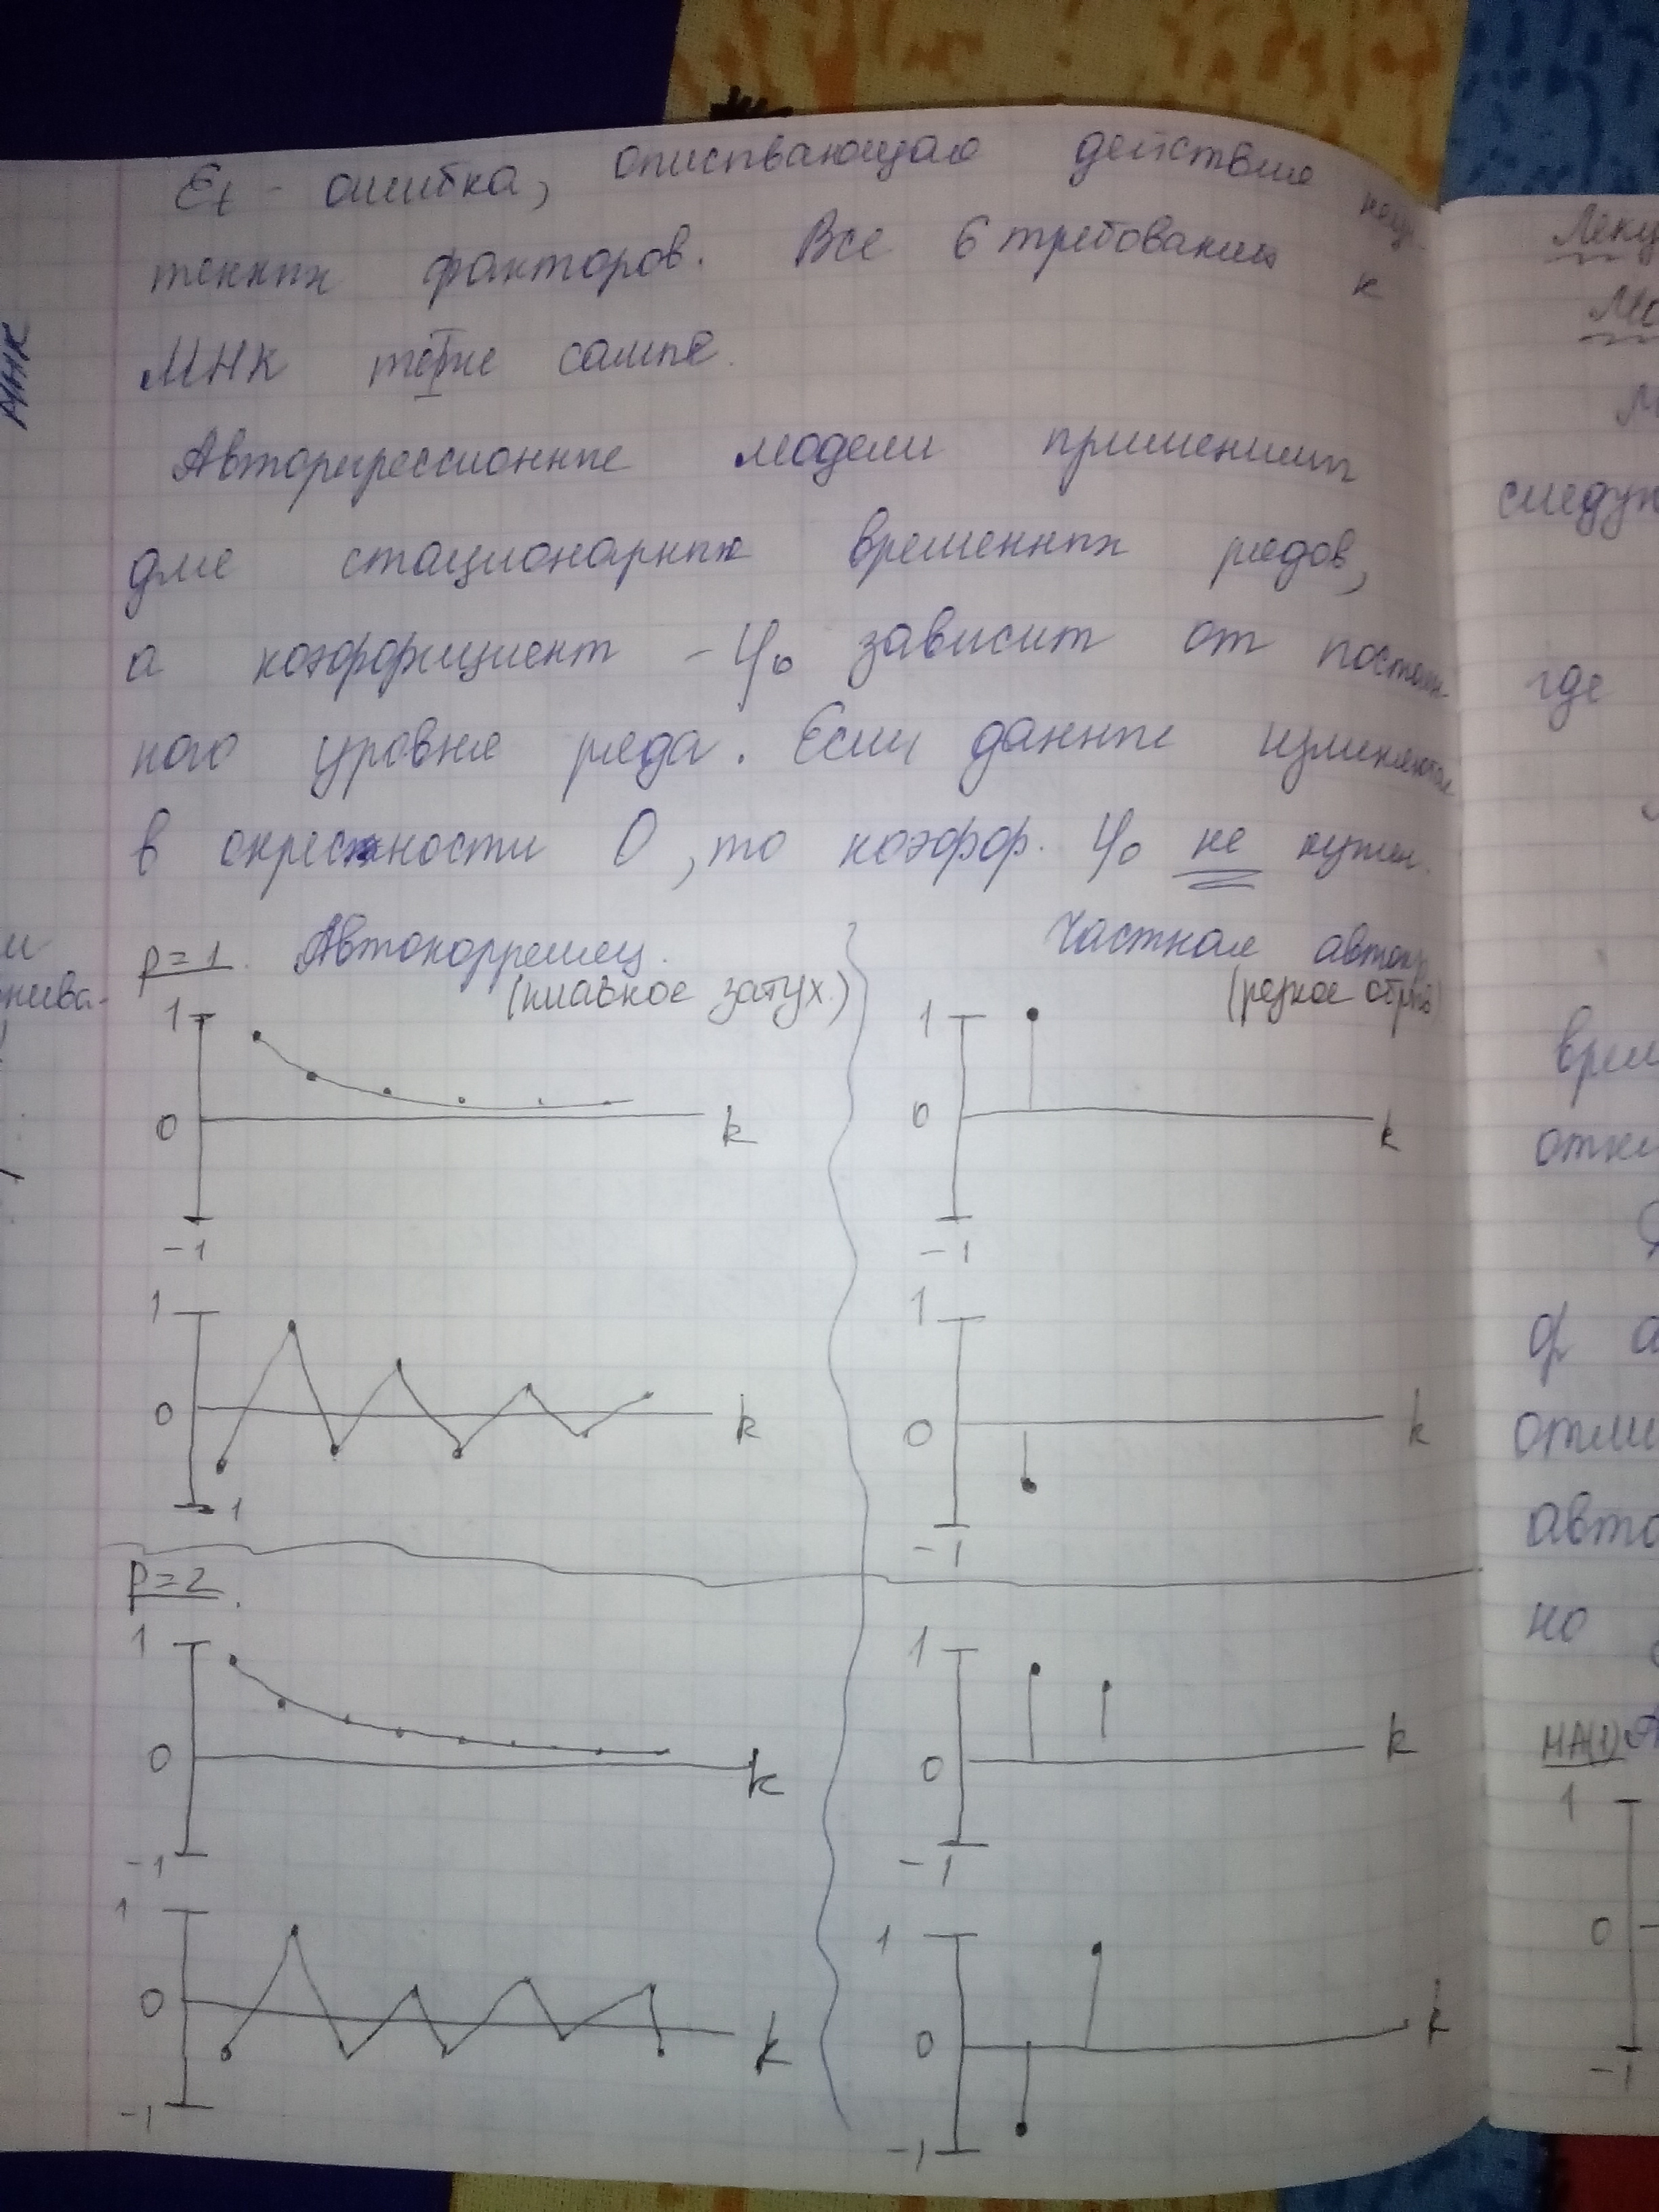 Ɛt - ошибка, описывающая действие неуч-
тенных факторов. Все 6 требований к
МНК те же самые.
Авторегрессионные модели применимы
для стационарных временных рядов,
а коэффициент - φ₀ зависит от постоян-
ного уровня ряда. Если данные изменяются
в окрестности 0, то коэфф. φ₀ не нужен.
p=1. Автокорреляц. Частная автокор
(плавное затух.) (резкое обрыв)
1 1
0 k 0 k
-1 -1
1 1
0 k 0 k
-1 -1
p=2.
1 1
0 k 0 k
-1 -1
1 1
0 k 0 k
-1 -1
МНК
и
нива-
следую
где
врем
откл
ф а
отли
авто
но
МА(1) А
1
0
-1